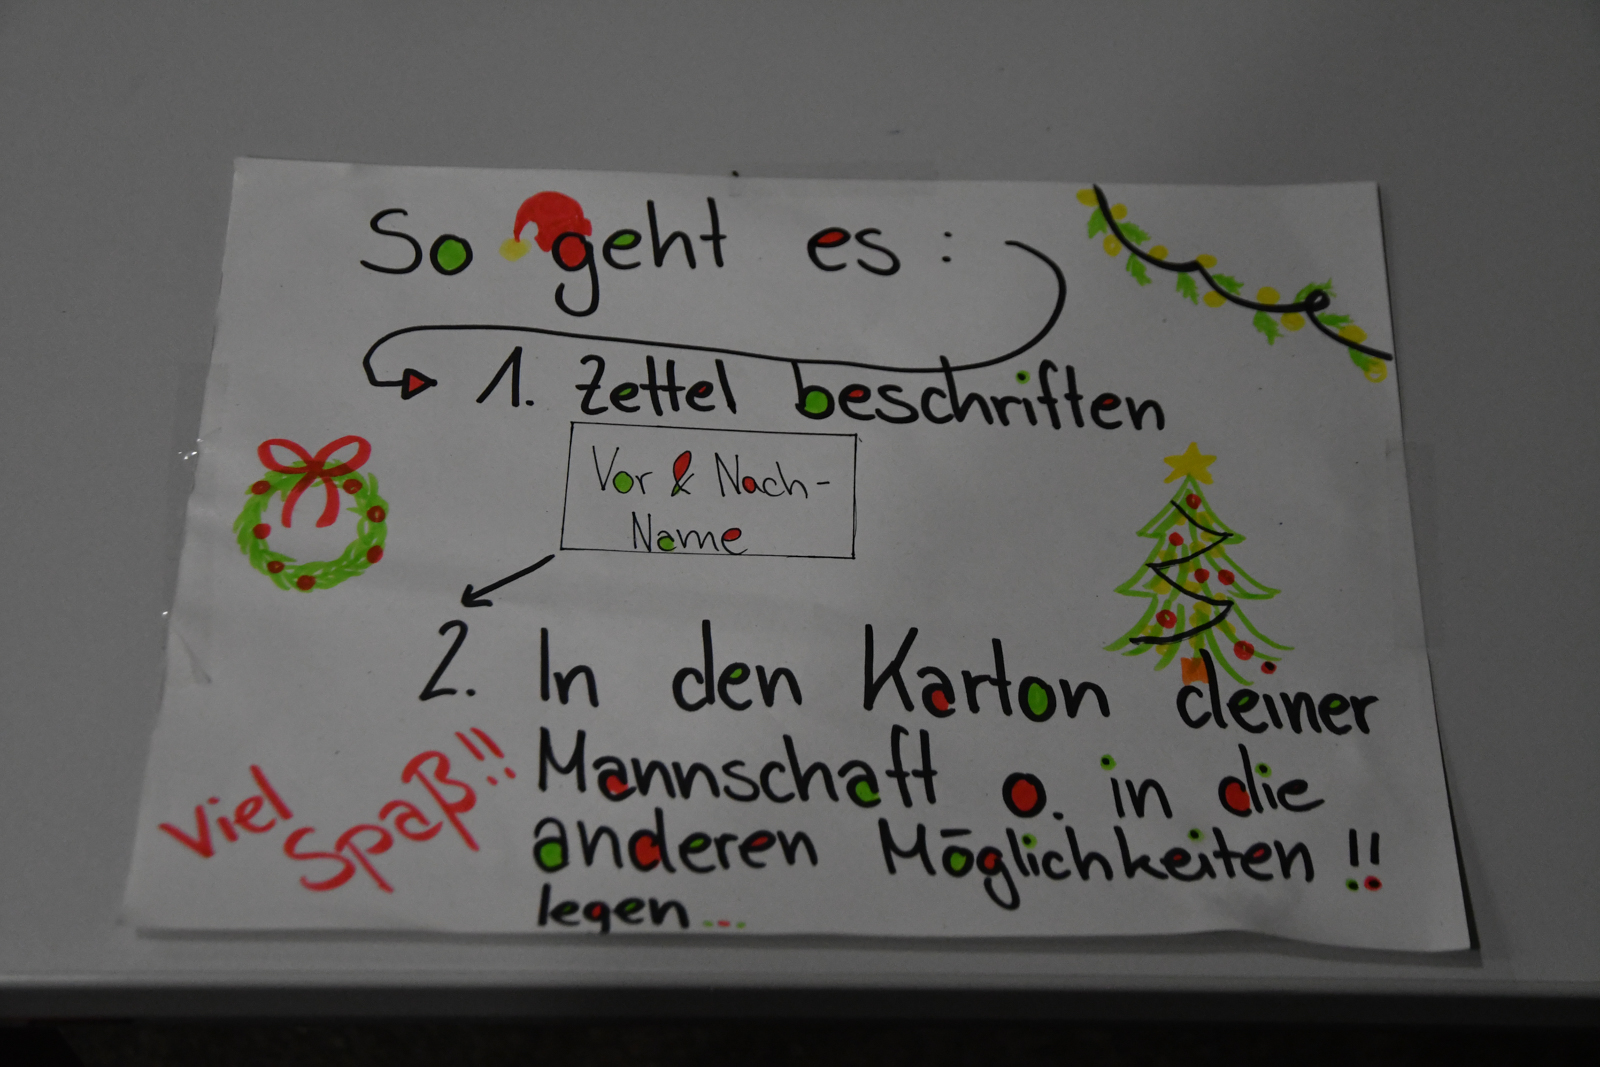 So geht es:
1. Zettel beschriften
Vor & Nach-
Name
2. In den Karton deiner
Mannschaft o. in die
anderen Möglichkeiten!!
legen...
Viel
Spaß!!